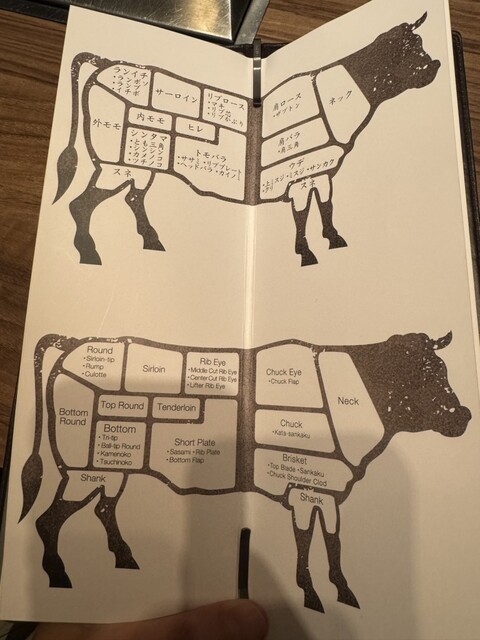 ランイチ
・ランボソ
・ランプ
・イチボ
サーロイン
リブロース
・マキ
・リブ芯
・リブかぶり
肩ロース
・ザブトン
ネック
外モモ
内モモ
ヒレ
シンタマ
・とも三角
・シンシン
・カメノコ
・ツチノコ
トモバラ
・ササミ・リブプレート
・ヘッドバラ・カイノミ
肩バラ
・肩三角
ウデ
・上ミスジ・ミスジ・サンカク
・クリ
スネ
スネ
Round
• Sirloin-tip
• Rump
• Culotte
Sirloin
Rib Eye
• Middle Cut Rib Eye
• Center Cut Rib Eye
• Lifter Rib Eye
Chuck Eye
• Chuck Flap
Neck
Bottom
Round
Top Round
Tenderloin
Bottom
• Tri-tip
• Ball-tip Round
• Kamenoko
• Tsuchinoko
Short Plate
• Sasami • Rib Plate
• Bottom Flap
Chuck
• Kata-sankaku
Brisket
• Top Blade • Sankaku
• Chuck Shoulder Clod
Shank
Shank